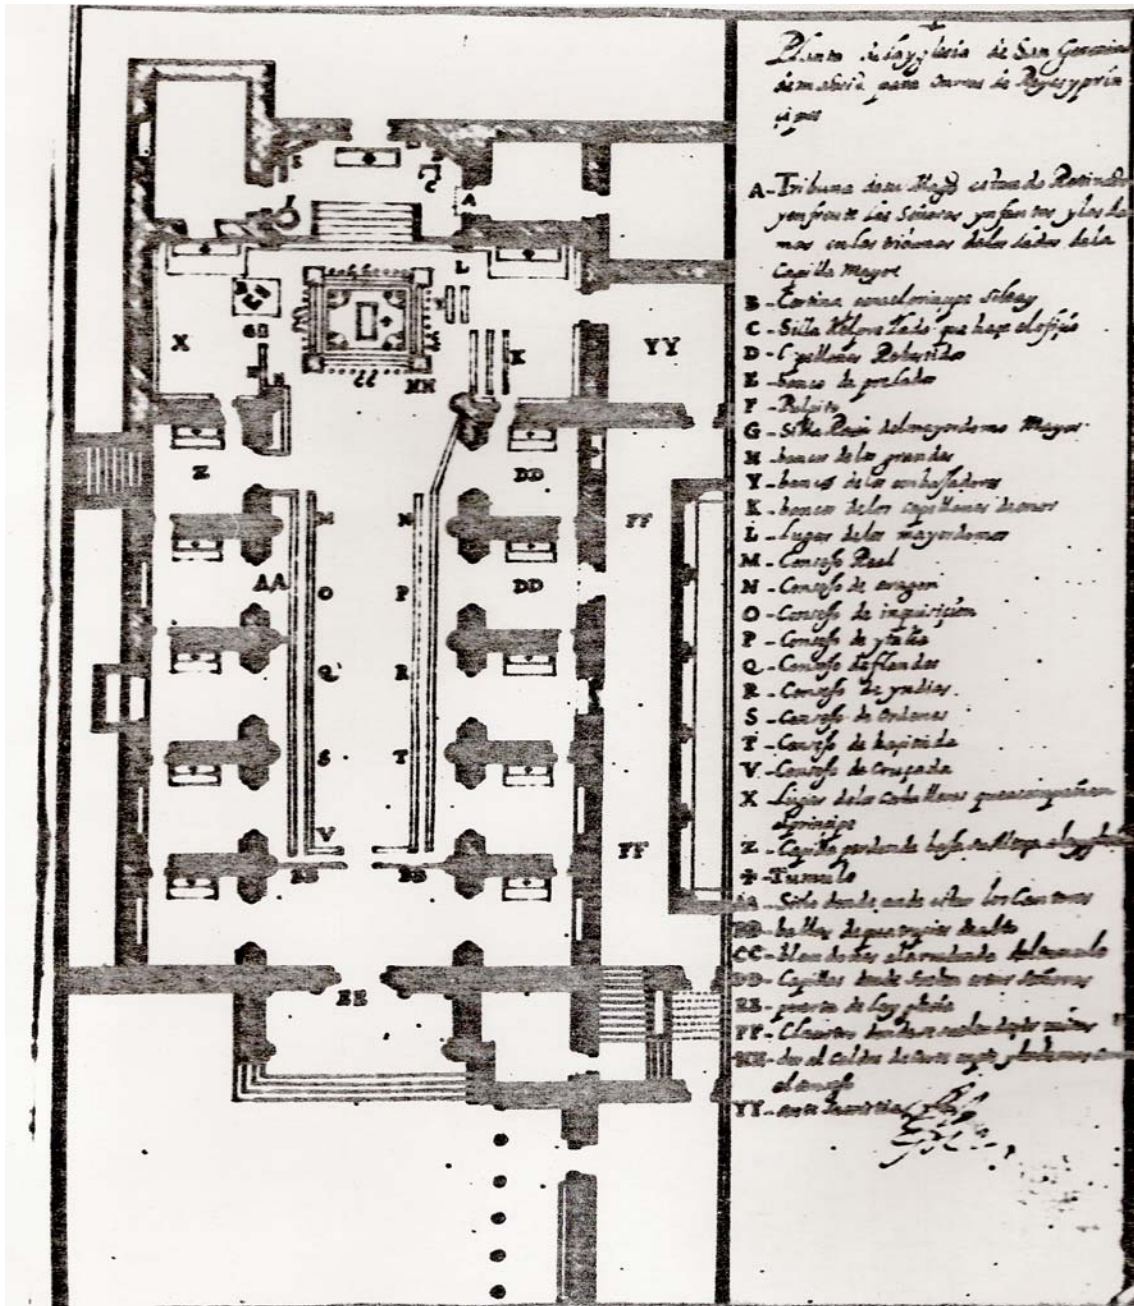 Planta de la yglesia de San Geronimo
de madrid para onrras de Reyes y prin
cipes
A - Tribuna de su Magd estando Retirado
y enfrente las Señoras ynfantas y las da
mas en las tribunas de los lados de la
Capilla Mayor
B - Cortina
C - Silla del prelado que haze el ofiçio
D - Capellanes Rebestidos
E - banco de prelados
F - Pulpito
G - Silla Rasa del mayordomo Mayor
H - bancos de los grandes
Y - banco de los embaxadores
K - bancos de los capellanes de onor
L - Lugar de los mayordomos
M - Consejo Real
N - Consejo de aragon
O - Consejo de inquisiçion
P - Consejo de ytalia
Q - Consejo de flandes
R - Consejo de yndias
S - Consejo de Ordenes
T - Consejo de hazienda
V - Consejo de Cruçada
X - Lugar de los Caballeros que acompañan
al principe
Z - Capilla por donde baja su Alteza a la yglesia
+ - Tumulo
AA - Sitio donde an de estar los Cantores
BB - de alto
CC - blandones al rededor del tumulo
DD - Capillas donde Señoras
EE - puerta de la yglesia
FF - Claustro donde se
HH - dos al
el consejo
YY - ante sacristia
A
L
X
K
YY
CC
HH
Z
DD
M
N
FF
AA
O
P
DD
Q
R
S
T
V
BB
BB
FF
EE